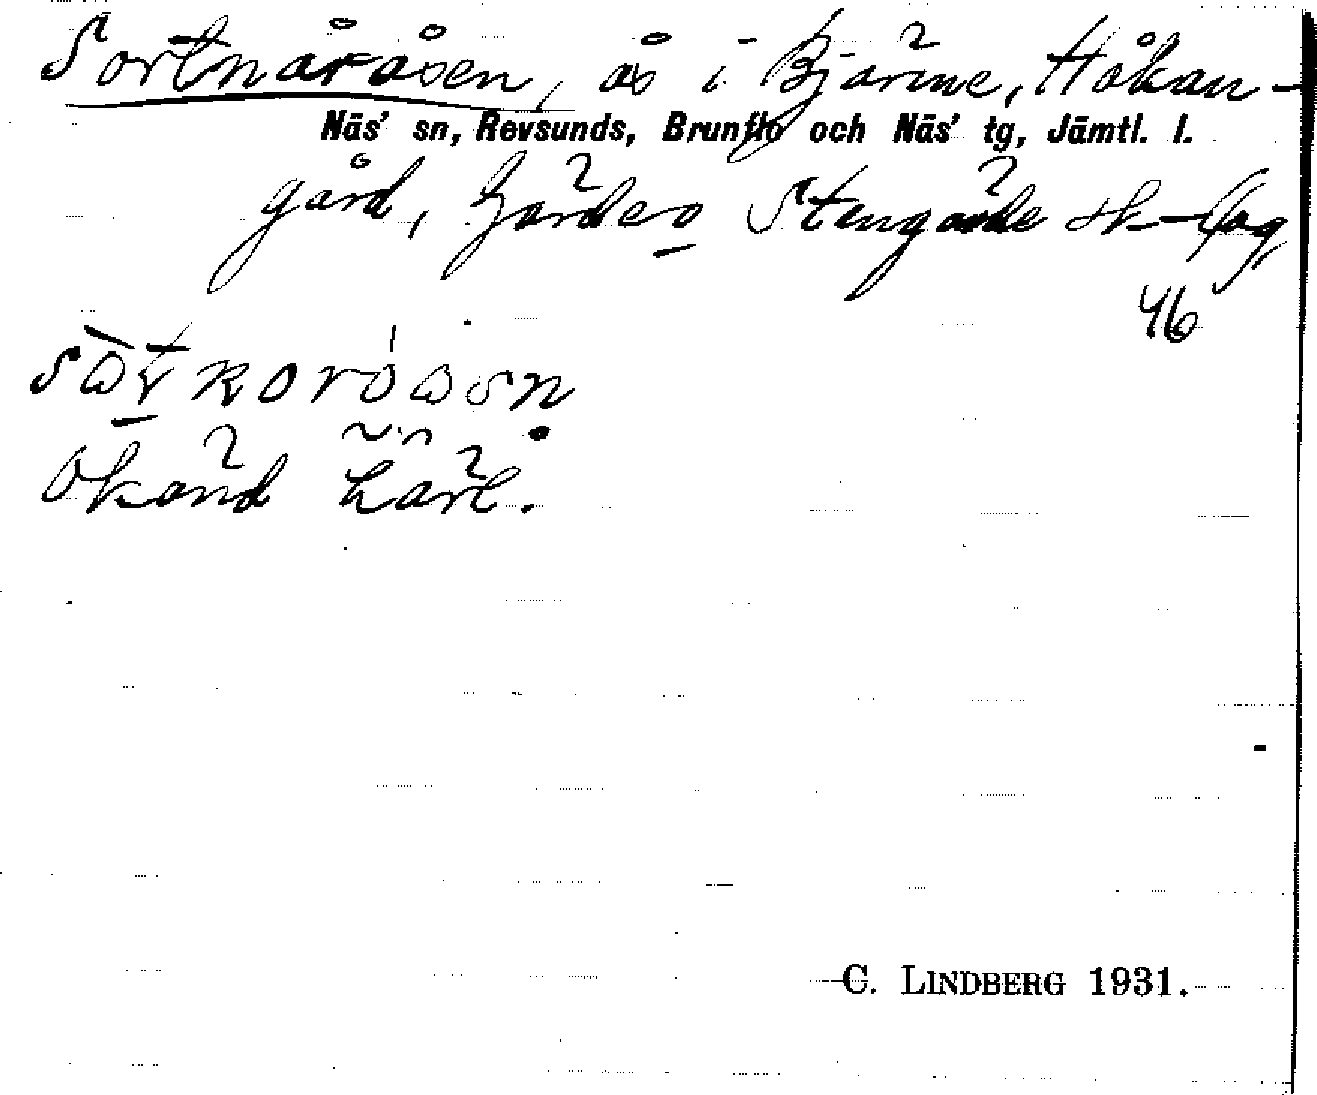 Sortnåråsen, ås i Bjärme, Håkan-
Näs' sn, Revsunds, Brunflo och Näs' tg, Jämtl. l.
gård, Gärde o Stengärde sk-lag
46
Okänd härl.
C. LINDBERG 1931.